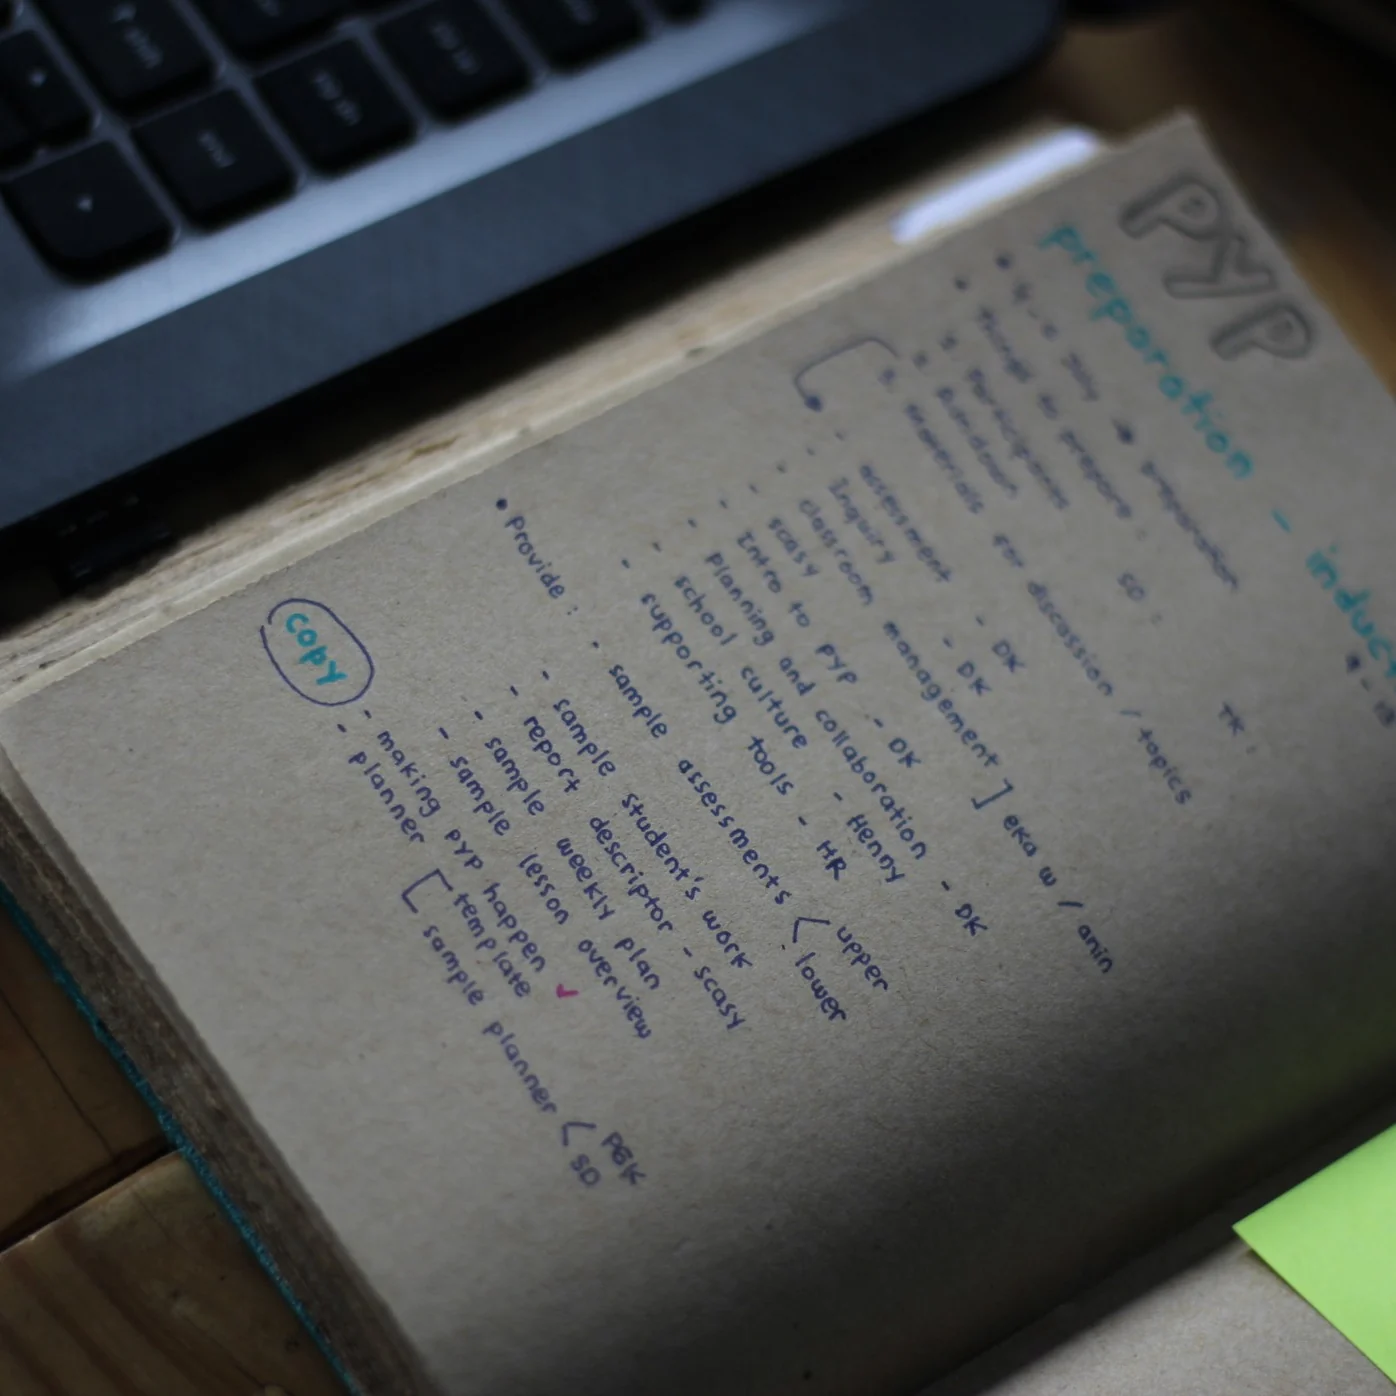 PYP
preparation - induct
July → preparation
• things to prepare :
SD : TK
1. Participants
2. Rundown
3. Materials for discussion / topics
- assessment - DK
- Inquiry - DK
- classroom management ] eka w / anin
- scasy
- Intro to PYP - DK
- planning and collaboration - DK
- school culture - Henny
- supporting tools - HR
• provide :
- sample assessments < upper
lower
- sample student's work
- report descriptor - scasy
- sample weekly plan
- sample lesson overview
copy
- making pyp happen ✓
- planner [ template
sample planner < PGK
SD
end